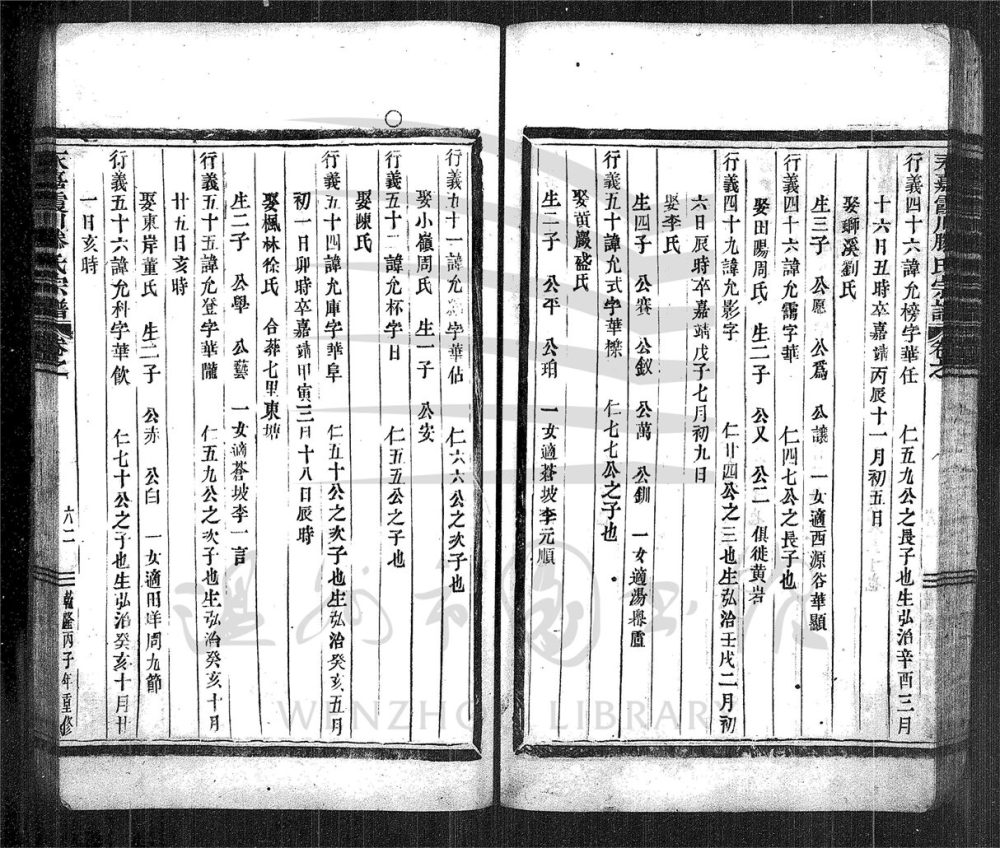 永嘉霞川滕氏宗譜 卷之
行義四十六諱允榜字華任 仁五九公之長子也生弘治辛酉三月
十六日丑時卒嘉靖丙辰十一月初五日
娶獅溪劉氏
生三子 公愿 公爲 公讓 一女適西源谷華顯
行義四十六諱允霱字華 仁四七公之長子也
娶田陽周氏 生二子 公又 公二 俱徙黄岩
行義四十九諱允影字 仁廿四公之三也生弘治壬戌二月初
六日辰時卒嘉靖戊子七月初九日
娶李氏
生四子 公賽 公釵 公萬 公釧 一女適湯嶴盧
行義五十諱允式字華檪 仁七七公之子也
娶黄巖盛氏
生二子 公平 公珀 一女適蒼坡李元順
行義五十一諱允 字華佔 仁六六公之次子也
娶小嶺周氏 生一子 公安
行義五十二諱允杯字日 仁五五公之子也
娶陳氏
行義五十四諱允庫字華阜 仁五十公之次子也生弘治癸亥五月
初一日卯時卒嘉靖甲寅三月十八日辰時
娶楓林徐氏 合葬七里東塘
生二子 公學 公藝 一女適蒼坡李一言
行義五十五諱允登字華隴 仁五九公之次子也生弘治癸亥十月
廿九日亥時
娶東岸董氏 生二子 公赤 公白 一女適田垟周九節
行義五十六諱允科字華飲 仁七十公之子也生弘治癸亥十月廿
一日亥時
永嘉霞川滕氏宗譜 卷之 六二 乾隆丙子年重修
温州市图书馆
WENZHOU LIBRARY